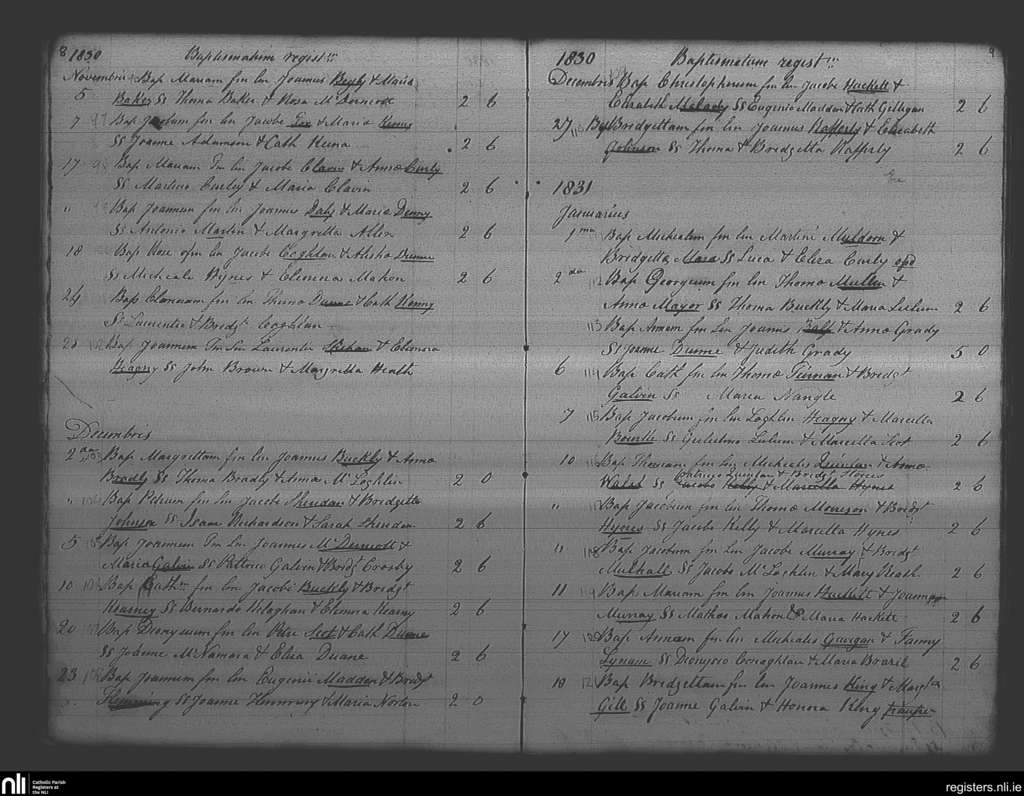 8 1830 Baptismatum regist!!!
Novembris Bap Mariam fm lin Joannis & Maria
5 Baker SS Thoma Baker & Rosa McDermott 2 6
7 Bap Jacobum fm lin Jacobi & Maria
SS Joanne Adamson & Cath 2 6
17 Bap Mariam fm lin Jacobi Clavin & Anna Curly
SS Martino Curley & Maria Clavin 2 6
" Bap Joannem fm lin Joannis Daly & Maria Denny
SS Antonio Martin & Margretta 2 6
18 Bap Rose lin Jacobi Coghlan & Dunne
SS Micheale Hynes & Elenora Mahon 2 6
24 Bap fm lin Thoma Dunne & Cath Kenny
SS Laurentio & Bredgt Coghlan
25 102 Bap Joannem fm lin Laurentii & Elenora
Heagny SS John Brown & Margretta Heath
Decembris
2 da Bap Margrettam fm lin Joannis Buckly & Anna
Bradly SS Thoma Bradly & Anna McLoghlin 2 0
" Bap Petrum fm lin Jacobi Sheridan & Bredgetta
Johnson SS Isaac Richardson & Sarah Sheridan 2 6
5 Bap Joannem fm lin Joannis McDermott &
Maria Galvin SS Patricio Galvin & Bredgt Crosby 2 6
10 Bap Cath fm lin Jacobi Buckly & Bredgt
Kearney SS Bernardo & Elenora Kearny 2 6
20 Bap Dionysium fm lin Petri Scot & Cath Duane
SS Joanne McNamara & Eliza Duane 2 6
23 Bap Joannem fm lin Eugenii Maddan & Bredgt
Flemming SS Joanne & Maria Norton 2 0
1830 Baptismatum regist!! 9
Decembris Bap Christopherum fm lin Jacobi Hackett &
Elizabeth Melady SS Eugenio Maddan & Cath Gilligan 2 6
27 Bap Bredgettam fm lin Joannis Rafferty & Elizabeth
Johnson SS Thoma & Bredgetta Rafferty 2 6
1831
Januarius
1 ma Bap Michealem fm lin Martini Muldoon &
Bredgetta Mara SS Luca & Eliza Curly
2 da Bap Georgeum fm lin Thoma Mullen &
Anna Mayor SS Thoma Buckly & Maria 2 6
113 Bap Annam fm lin Joannis & Anna Grady
SS Joanne Dunne & Judith Grady 5 0
6 114 Bap Cath fm lin Thoma Tiernan & Bredgt
Galvin SS Maria Nangle 2 6
7 115 Bap Jacobum fm lin Loghlin Heagny & Marcella
SS Gulielmo & Marcella Scot 2 6
10 Bap Thomam fm lin Michealis Quinlan & Anna
Patricio Quinlan & Bredgt
Walsh SS Jacobo Kelly & Marcella Hynes 2 6
" Bap Jacobum fm lin Thoma & Bredgt
Hynes SS Jacobo Kelly & Marcella Hynes 2 6
11 Bap Jacobum fm lin Jacobi Murray & Bredgt
Mulhall SS Jacobo McLoghlin & Mary Heath 2 6
11 Bap Mariam fm lin Joannis Hackett & Joanna
Murray SS Mathia Mahon & Maria Hackett 2 6
17 Bap Annam fm lin Michealis & Fanny
Lynam SS Dionysio Conaghlan & Maria Brazil 2 6
18 Bap Bredgettam fm lin Joannis King & Margt
Gill SS Joanne Galvin & Honora King pauper
nli Catholic Parish
Registers at
the NLI
registers.nli.ie